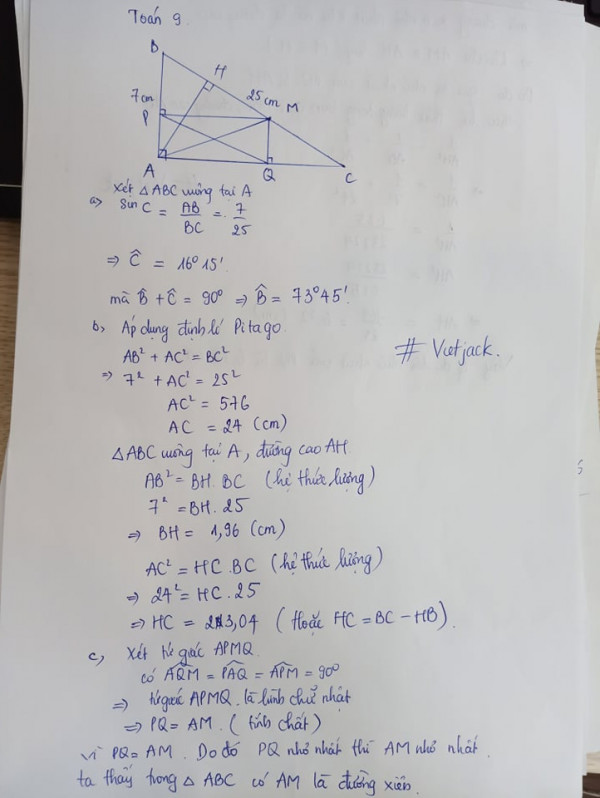 Toán 9
B
H
7cm
25cm
M
P
A
Q
C
Xét △ABC vuông tại A
a, Sin C = AB/BC = 7/25
⇒ Ĉ = 16°15'
mà B̂ + Ĉ = 90° ⇒ B̂ = 73°45'.
b, Áp dụng định lí Pitago
AB² + AC² = BC²
# Vietjack.
⇒ 7² + AC² = 25²
AC² = 576
AC = 24 (cm)
△ABC vuông tại A, đường cao AH
AB² = BH. BC (hệ thức lượng)
7² = BH. 25
⇒ BH = 1,96 (cm)
AC² = HC. BC (hệ thức lượng)
⇒ 24² = HC. 25
⇒ HC = 23,04 (Hoặc HC = BC - HB).
c, Xét tứ giác APMQ
có AQM = PAQ = APM = 90°
⇒ tứ giác APMQ là hình chữ nhật
⇒ PQ = AM. (tính chất)
vì PQ = AM. Do đó PQ nhỏ nhất thì AM nhỏ nhất.
ta thấy trong △ ABC có AM là đường xiên.